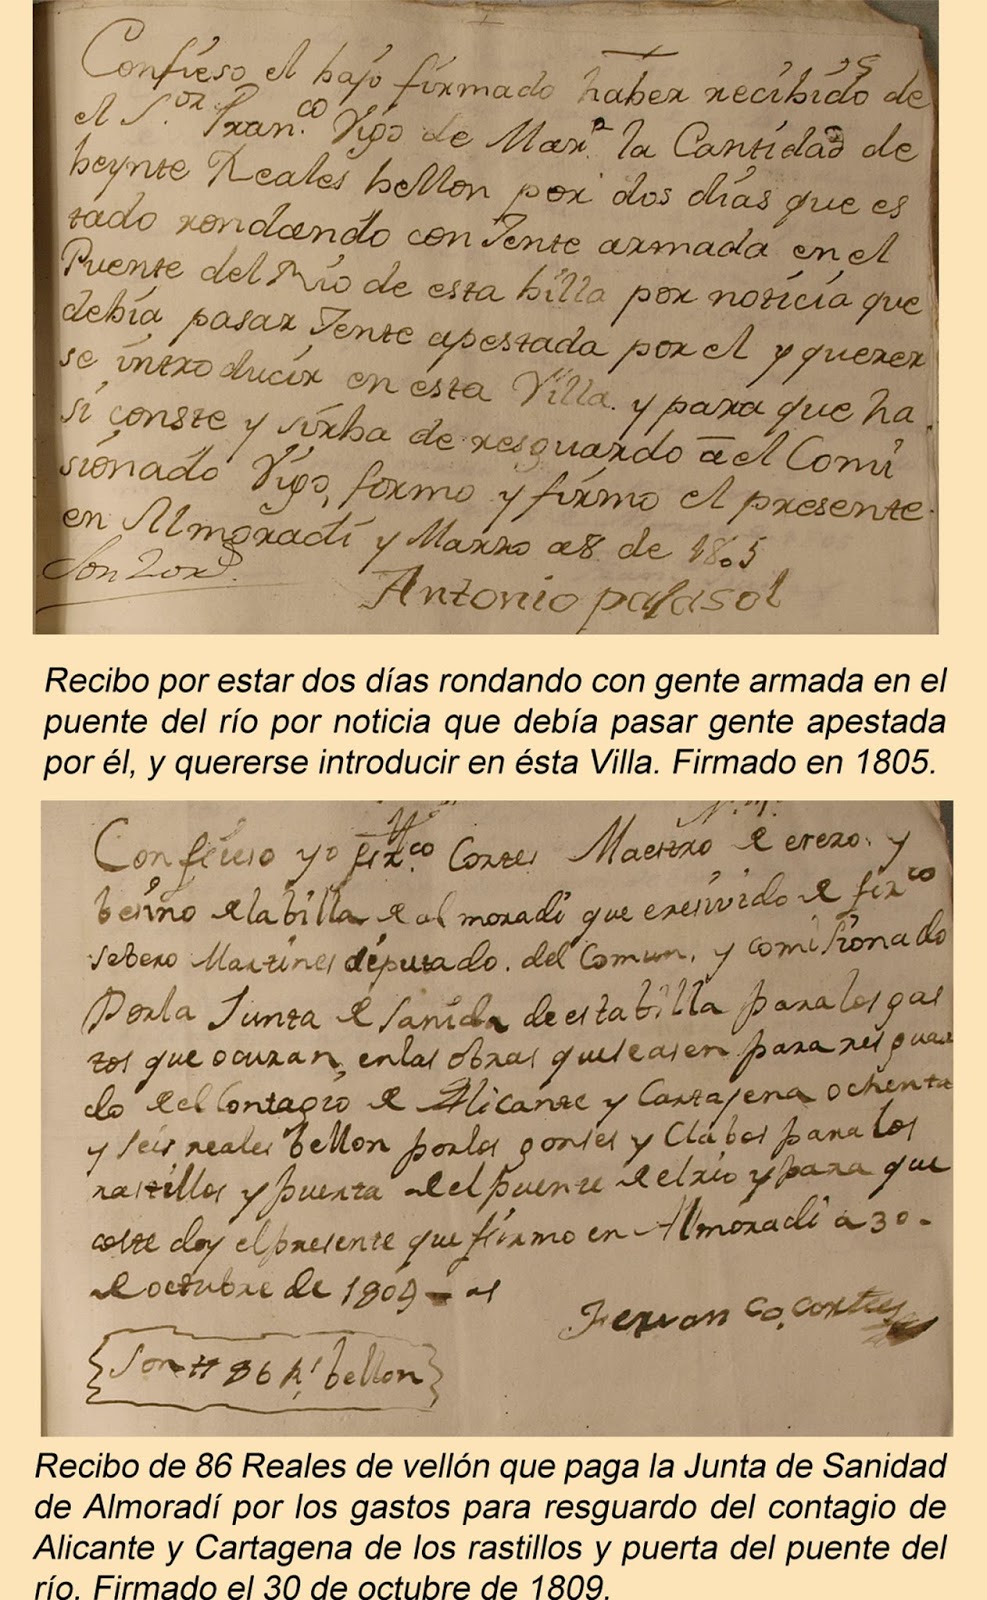 Confieso el bajo firmado haber recibido de
el S.or Fran.co Vigo de Mar.n la Cantidad de
beynte Reales bellon por dos días que es
tado rondando con Jente armada en el
Puente del Río de esta billa por noticia que
debía pasar Jente apestada por el y querer
se introducir en esta Villa. y para que ha
si conste y sirba de resguardo a el Comi
sionado Vigo, formo y firmo el presente
en Almoradí y Marzo a8 de 1805
Son 20 r.s
Antonio parasol
Recibo por estar dos días rondando con gente armada en el
puente del río por noticia que debía pasar gente apestada
por él, y quererse introducir en ésta Villa. Firmado en 1805.
Confieso yo fr.co Cortes Maestro de erero, y
besino de la billa de al moradi que eresivido de fir.co
sebero Martines deputado. del Comun, y comisionado
Porla Junta de Sanida de esta billa para los gas
tos que ocuran, enlas obras queseasen para resguar
do del Contagio de Alicante y Cartajena ochenta
y seis reales bellon porlos gonses y Clabos para los
rastillos y puerta del puente del rio y para que
coste doy el presente que firmo en Almoradi a 30-
de octubre de 1809
Fernan co, cortes
Son # 86 R.s bellon
Recibo de 86 Reales de vellón que paga la Junta de Sanidad
de Almoradí por los gastos para resguardo del contagio de
Alicante y Cartagena de los rastillos y puerta del puente del
río. Firmado el 30 de octubre de 1809.